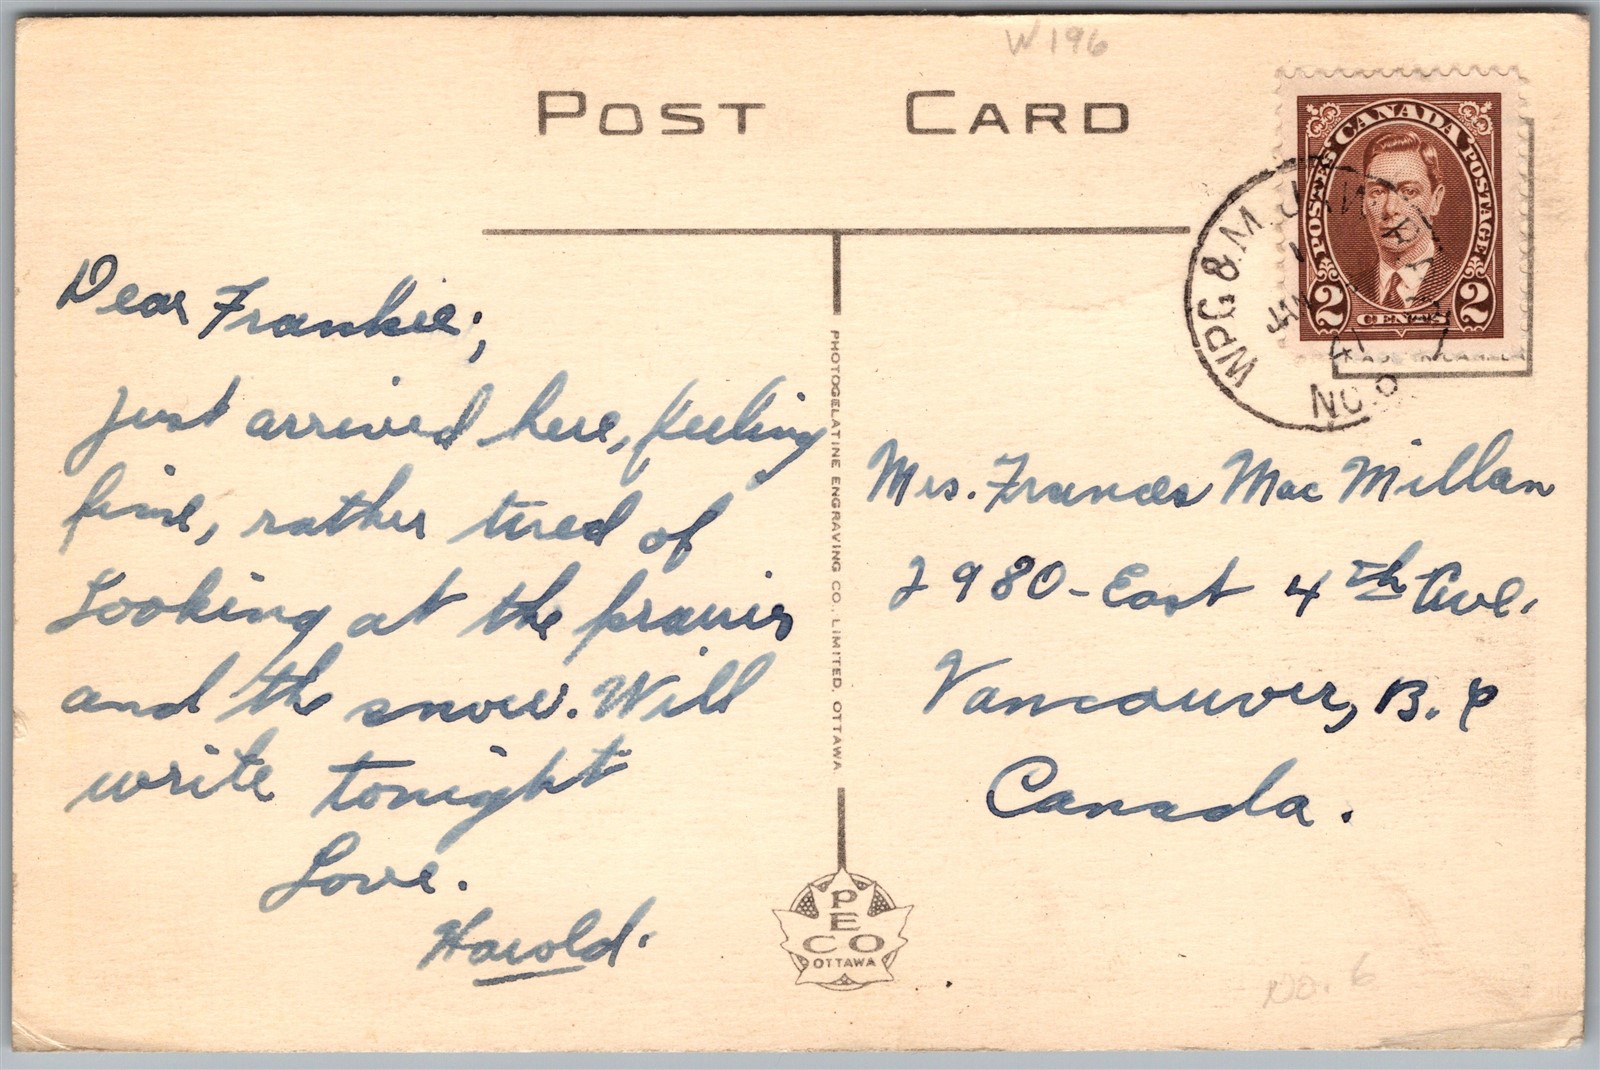 W196
POST CARD
CANADA
POSTES POSTAGE
2 CENTS 2
WPG & M. JAW
JAN
NO. 8
Dear Frankie;
Just arrived here, feeling
fine, rather tired of
Looking at the prairies
and the snow. Will
write tonight
Love.
Harold.
PHOTOGELATINE ENGRAVING CO., LIMITED, OTTAWA
PECO
OTTAWA
Mrs. Frances Mac Millan
2980-East 4th Ave.
Vancouver, B.C
Canada.
No. 6